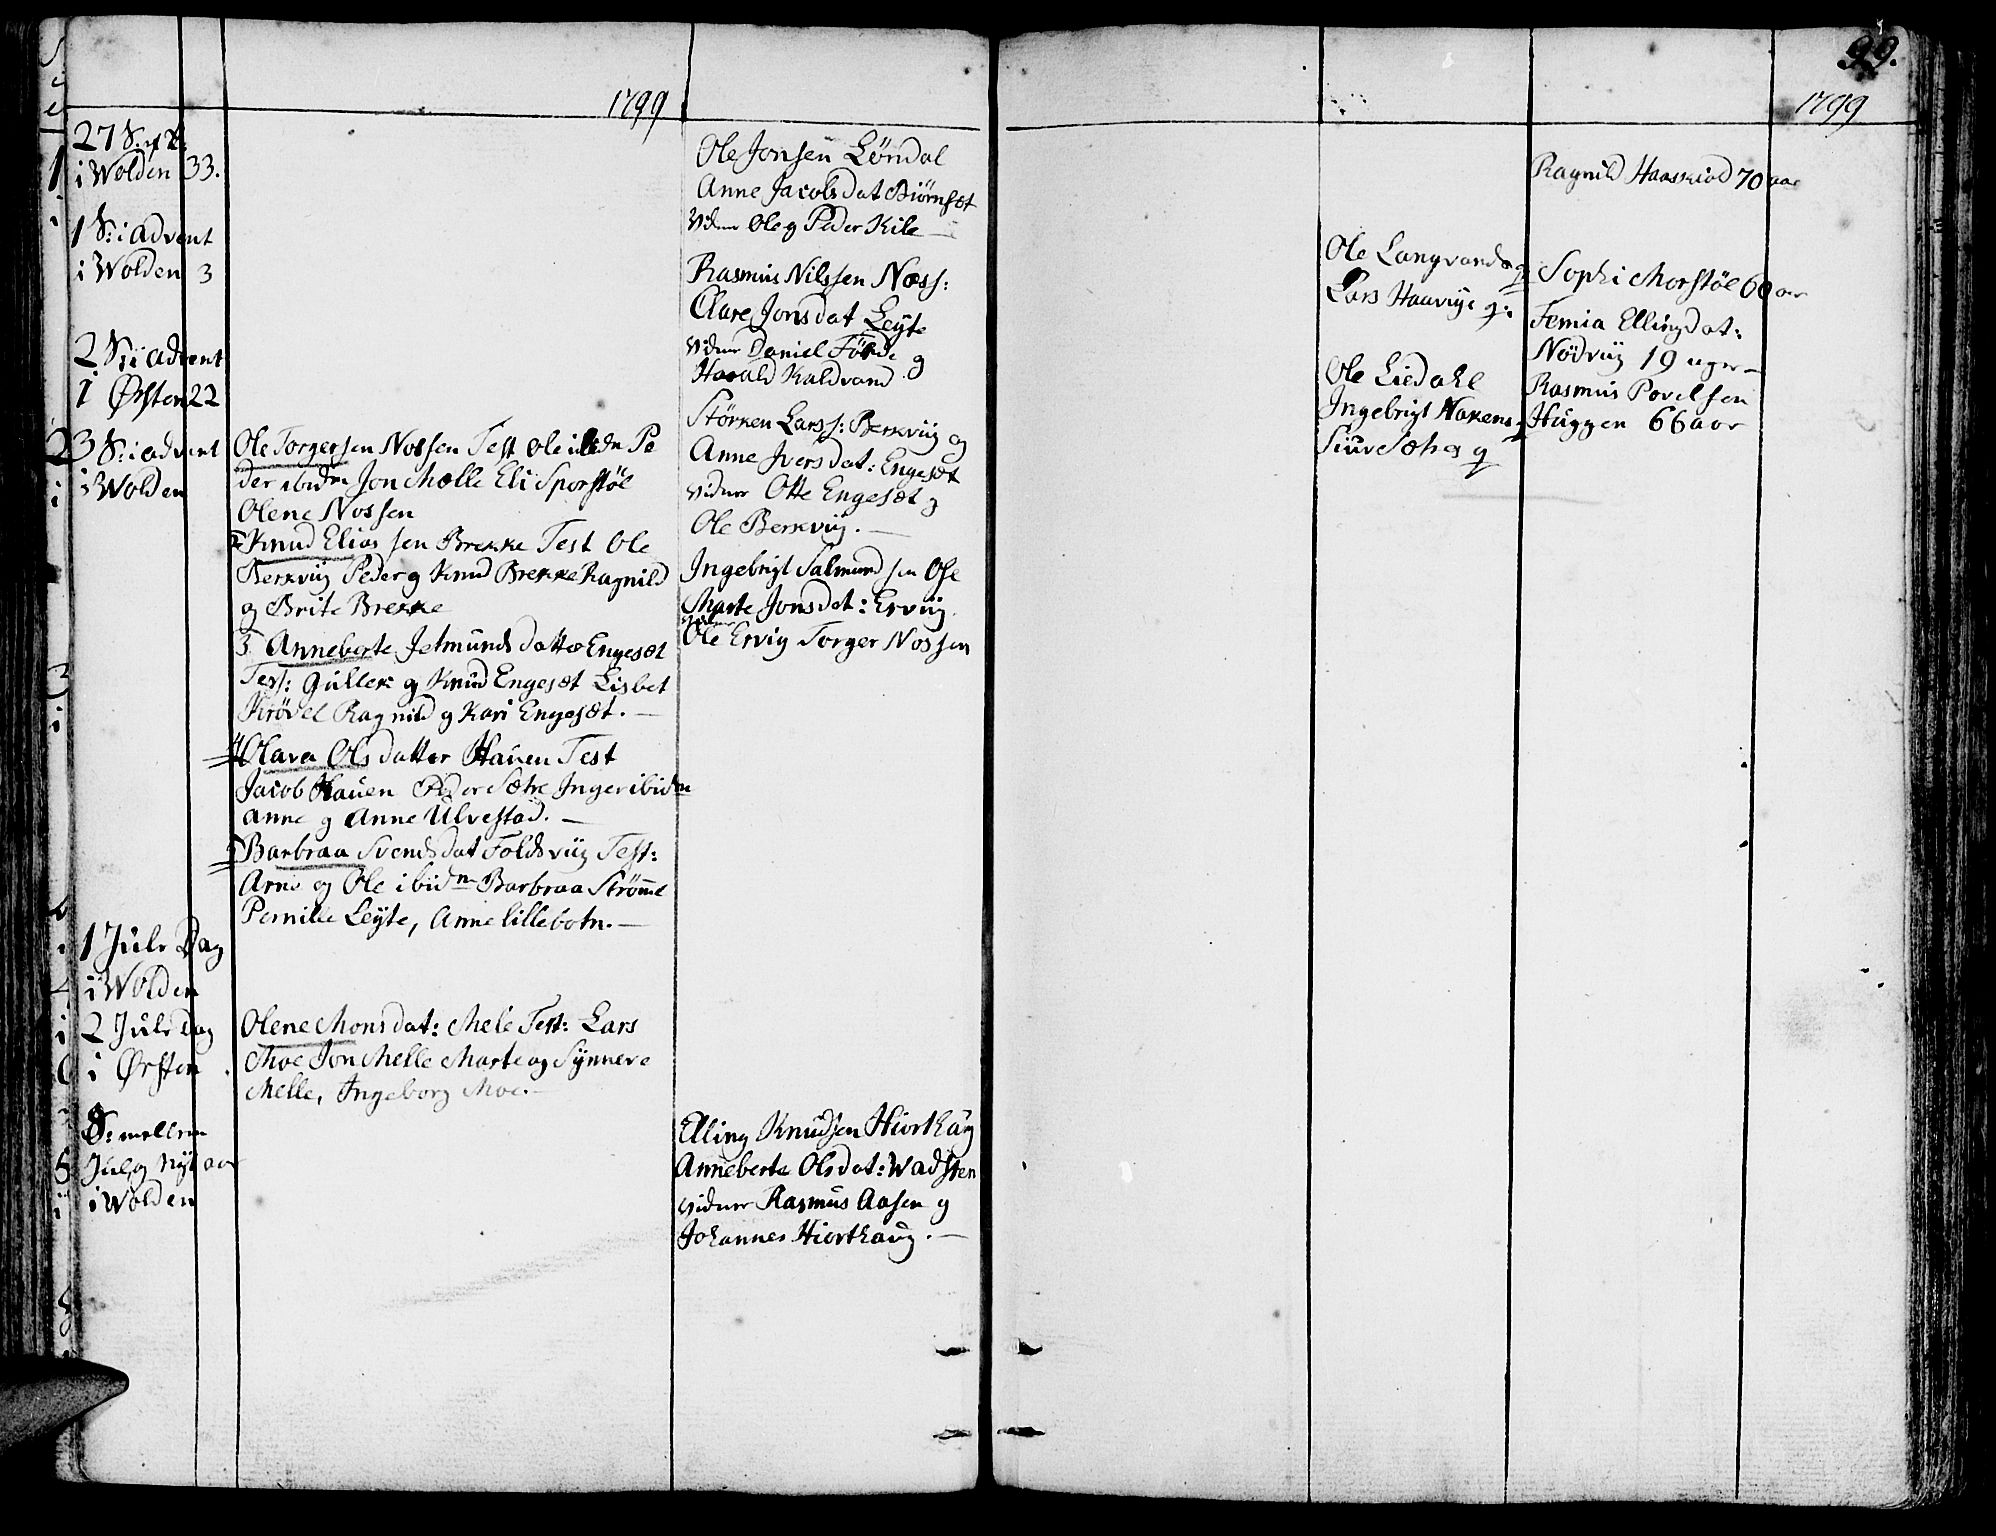 1799
27 S: p T:
i Wolden 33.
1 S: i advent
i Wolden 3
2 S: i advent
i Ørsten 22
3 S: i advent
i Wolden
1 Jule Dag
i Wolden
2 Jule Dag
i Ørsten
S: mellem
Jul og Nyt aar
i Wolden
Ole Torgersen Nossen Test Ole ibdn Pe
der ibidm Jon Melle Eli Sporstøl
Olene Nossen
2 Knud Elias sen Brekke Test Ole
Berkviig Peder og Knud Brekke Ragnild
og Brite Brekke
3 Anneberte Jetmunds datter Engeset
Test: Gullek og Knud Engeset Lisbet
Krøvel Ragnild og Kari Engeset. —
4 Olava Olsdatter Hauen Test
Jacob Hauen Peder Sætre Inger ibidm
Anne og Anne Ulvestad. —
5 Barbraa Svends dat Foldsviig Test:
Arne og Ole ibidm Barbraa Strømme
Pernille Leyte, Anne Lillebotn. —
Olene Monsdat: Mele Test: Lars
Moe Jon Melle Marte og Synneve
Melle, Ingeborg Moe. —
Ole Jonsen Løndal
Anne Jacobsdat Biørnset
Vidner Ole og Peder Kile —
Rasmus Nilssen Næss:
Clare Jonsdat Leyte
Vidner DanielFørde og
Harald Kaldvand
Størken Larss: Berkviig og
Anne Iversdat: Engeset
Vidner Otte Engeset og
Ole Berkviig. —
Ingebrigt Salmund sen Ose
Marte Jonsdet: Erviig
vidner
Ole Ervig Torger Nossen
Elling Knudsen Hiorthaug
Anneberte Olsdat: Wadsten
vidner Rasmus Aasen og
Johannes Hiorthaug. —
99.
1799
Ole Langvands g
Lars Haavige g:
Ole Liedahl
Ingebrigt Nakens
Siur Sæhes g
Ragnild Haaskiod 70 aar
Sophi Morstøl 60 aar
Femia Ellingdat:
Nødviig 19 uger —
Rasmus Povelsen
Huggen 66 aar